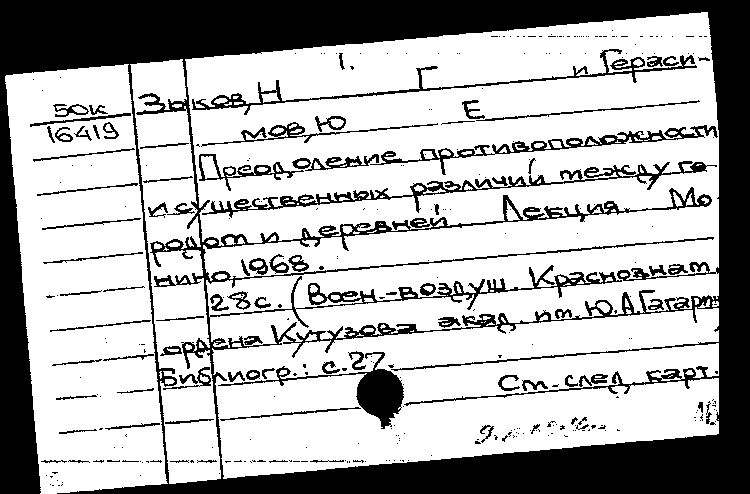 1.
Зыков, Н Г и Гераси-
50к
16419
мов, Ю Е
Преодоление противоположности
и существенных различий между го
родом и деревней. Лекция. Мо
нино, 1968.
28с. (Воен.-воздуш. Краснознам.
ордена Кутузова акад. им. Ю.А.Гагарин
Библиогр.: с.27.
См. след. карт.